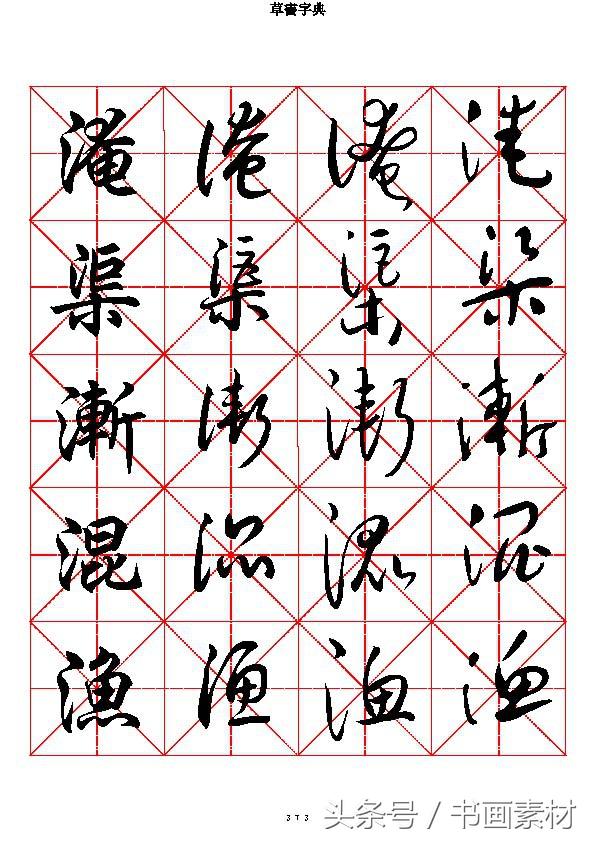 草書字典
淹 淹 淹 淹
渠 渠 渠 渠
漸 漸 漸 漸
混 混 混 混
漁 漁 漁 漁
373
头条号 / 书画素材